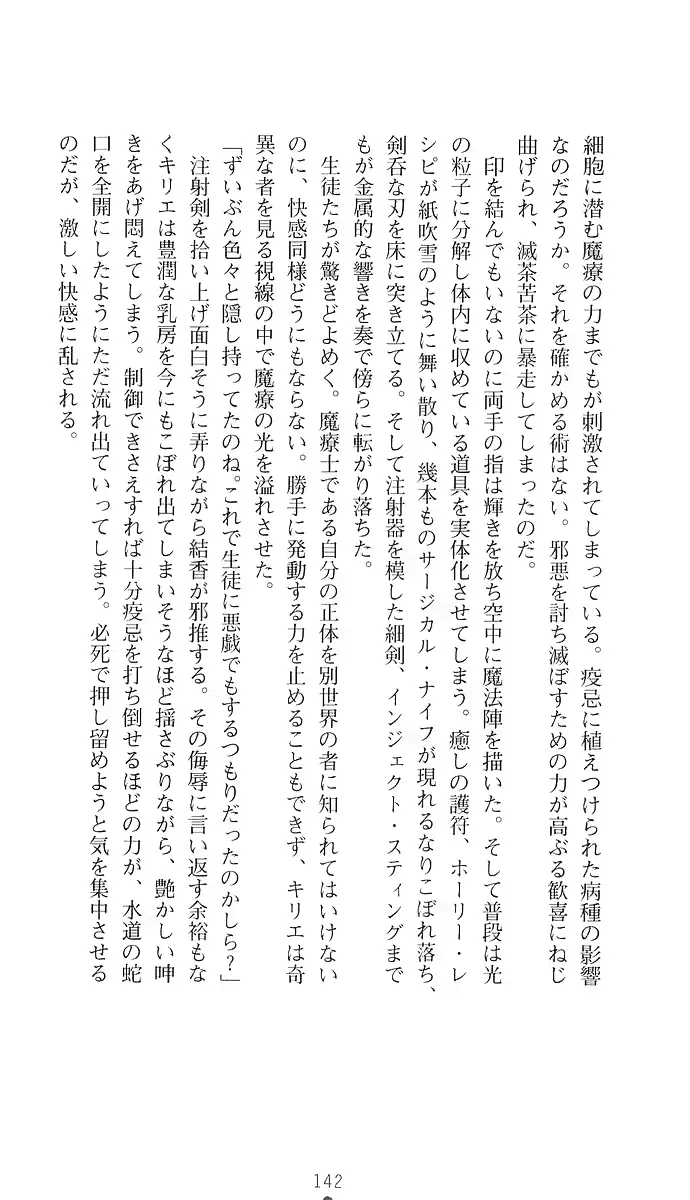 細胞に潜む魔療の力までもが刺激されてしまっている。疫忌に植えつけられた病種の影響
なのだろうか。それを確かめる術はない。邪悪を討ち滅ぼすための力が高ぶる歓喜にねじ
曲げられ、滅茶苦茶に暴走してしまったのだ。
　印を結んでもいないのに両手の指は輝きを放ち空中に魔法陣を描いた。そして普段は光
の粒子に分解し体内に収めている道具を実体化させてしまう。癒しの護符、ホーリー・レ
シピが紙吹雪のように舞い散り、幾本ものサージカル・ナイフが現れるなりこぼれ落ち、
剣呑な刃を床に突き立てる。そして注射器を模した細剣、インジェクト・スティングまで
もが金属的な響きを奏で傍らに転がり落ちた。
　生徒たちが驚きどよめく。魔療士である自分の正体を別世界の者に知られてはいけない
のに、快感同様どうにもならない。勝手に発動する力を止めることもできず、キリエは奇
異な者を見る視線の中で魔療の光を溢れさせた。
「ずいぶん色々と隠し持ってたのね。これで生徒に悪戯でもするつもりだったのかしら？」
　注射剣を拾い上げ面白そうに弄りながら結香が邪推する。その侮辱に言い返す余裕もな
くキリエは豊潤な乳房を今にもこぼれ出てしまいそうなほど揺さぶりながら、艶かしい呻
きをあげ悶えてしまう。制御できさえすれば十分疫忌を打ち倒せるほどの力が、水道の蛇
口を全開にしたようにただ流れ出ていってしまう。必死で押し留めようと気を集中させる
のだが、激しい快感に乱される。
142